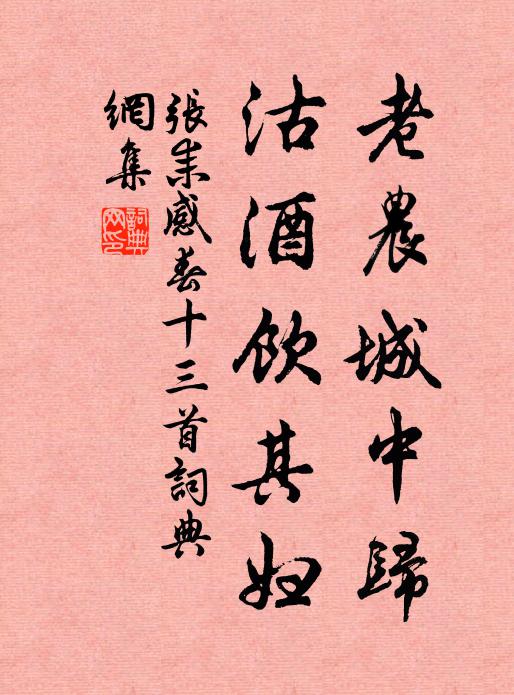 老農城中歸
沽酒飲其婦
張耒感春十三首詞典
網集
詞典網印